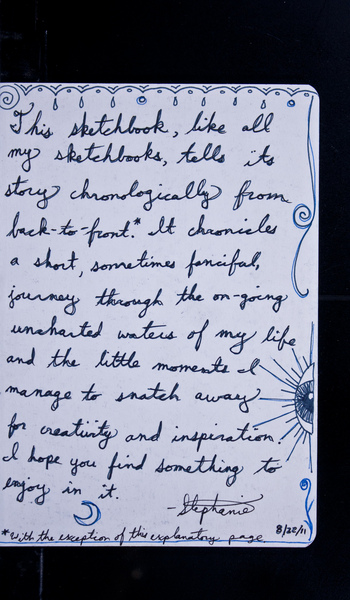 This sketchbook, like all
my sketchbooks, tells its
story chronologically from
back-to-front.* It chronicles
a short, sometimes fanciful,
journey through the on-going
uncharted waters of my life
and the little moments I
manage to snatch away
for creativity and inspiration.
I hope you find something to
enjoy in it.
-Stephanie
*with the exception of this explanatory page.
8/22/11